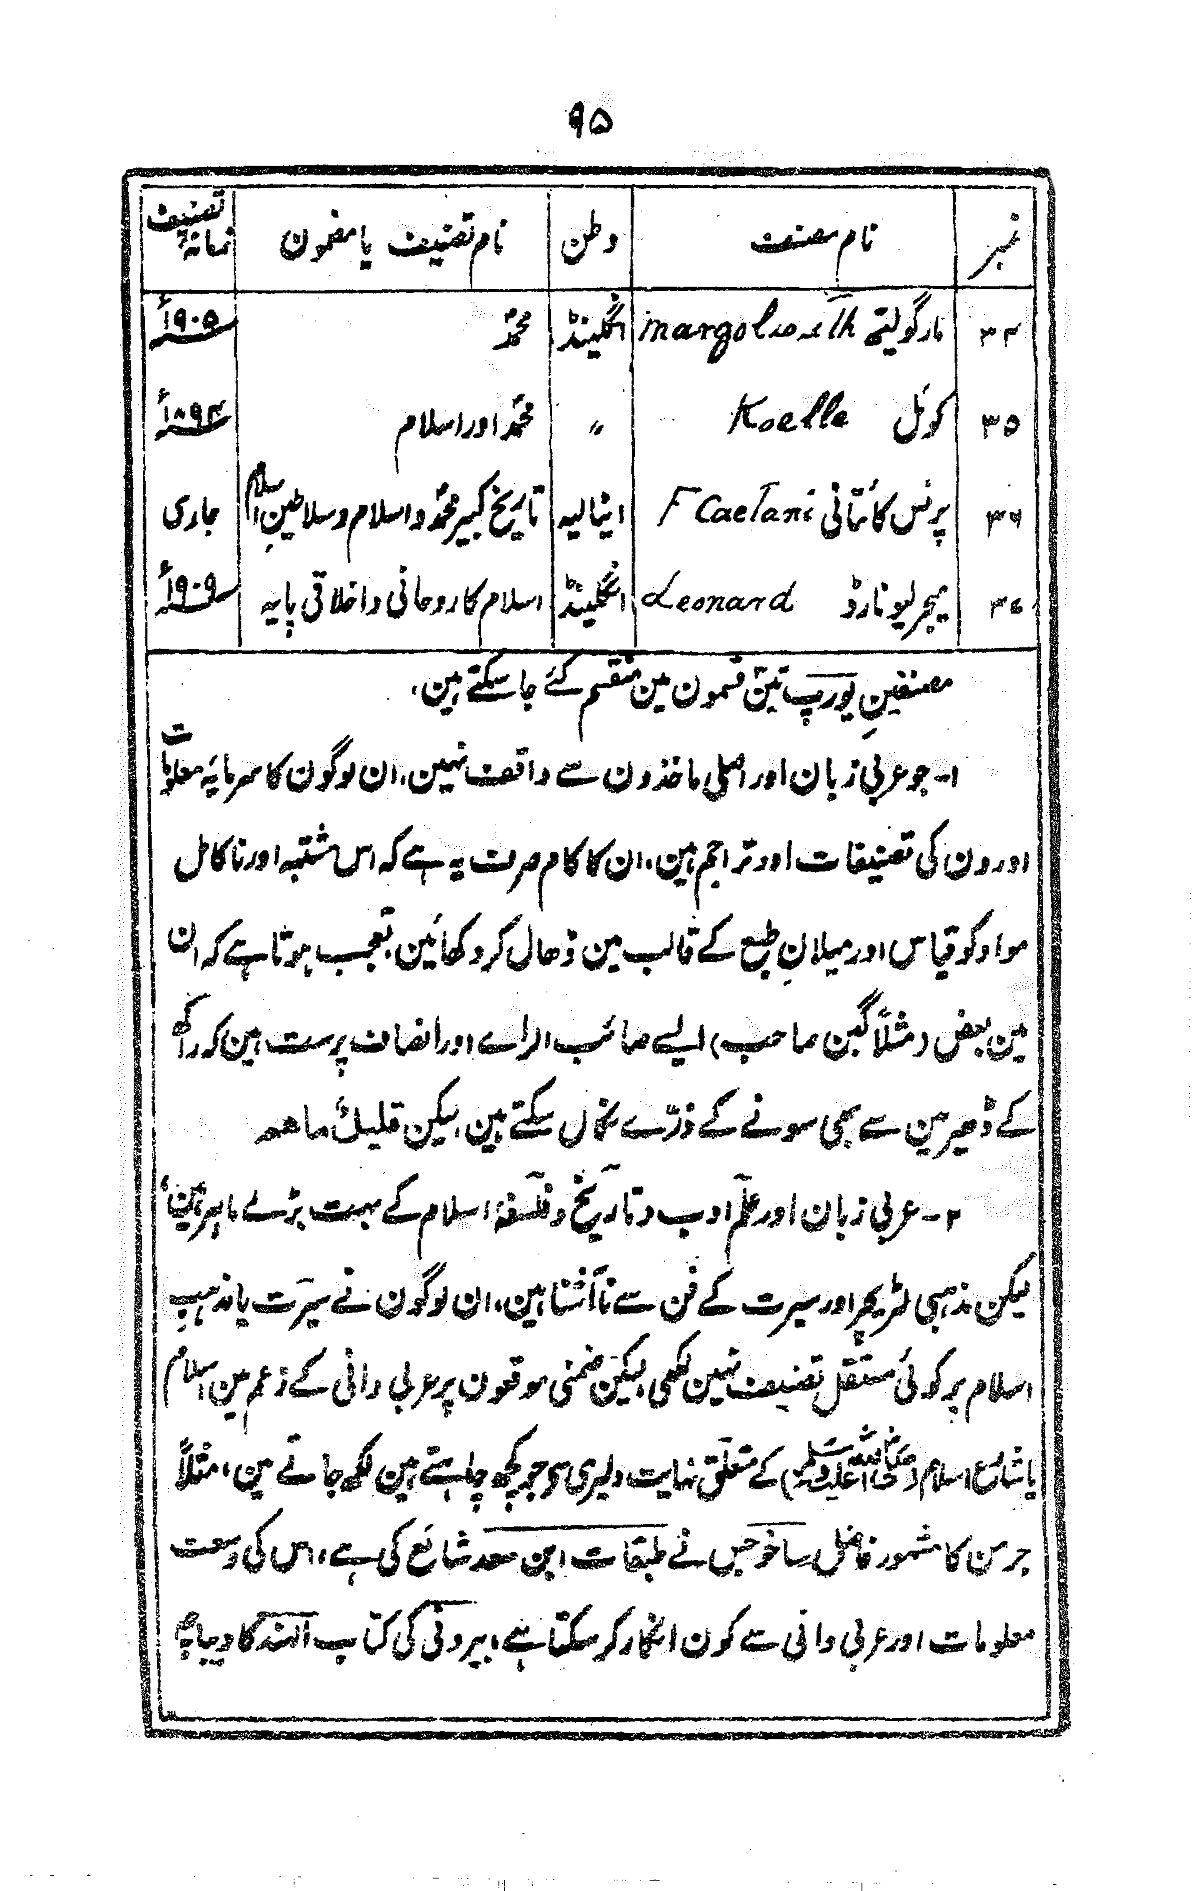 ۹۵
نمبر نام مصنف وطن نام تصنیف یا مضمون زمانۂ تصنیف
۳۴ مارگولیتھ margolioeth انگلینڈ محمدؐ ۱۹۰۵ء
۳۵ کوئل Koelle 〃 محمدؐ اور اسلام ۱۸۹۴ء
۳۶ پرنس کائتانی F Caetani اٹالیہ تاریخ کبیر محمدؐ و اسلام و سلاطینِ اسلام جاری
۳۷ میجر لیونارڈ Leonard انگلینڈ اسلام کا روحانی و اخلاقی پایہ ۱۹۰۹ء
مصنفینِ یورپ تین قسمون مین منقسم کئے جا سکتے ہین،
۱- جو عربی زبان اور اصلی ماخذون سے واقف نہین، ان لوگون کا سرمایۂ معلومات
اورون کی تصنیفات اور تراجم ہین، ان کا کام صرف یہ ہے کہ اس مشتبہ اور ناکامل
مواد کو قیاس اور میلانِ طبع کے قالب مین ڈھال کر دکھائین، تعجب ہوتا ہے کہ ان
مین بعض (مثلاً گبن صاحب) ایسے صائب الراے اور انصاف پرست ہین کہ راکھ
کے ڈھیر مین سے بھی سونے کے ذرّے نکال سکتے ہین، لیکن قلیلٌ ما هم
۲- عربی زبان اور علم ادب و تاریخ و فلسفۂ اسلام کے بہت بڑے ماہر ہین،
لیکن مذہبی لٹریچر اور سیرت کے فن سے ناآشنا ہین، ان لوگون نے سیرت یا مذہب
اسلام پر کوئی مستقل تصنیف نہین لکھی، لیکن ضمنی موقعون پر عربی دانی کے زعم مین اسلام
یا شارع اسلام (صلی اللہ علیہ وسلم) کے متعلق نہایت دلیری سے جو کچھ چاہتے ہین لکھ جاتے ہین، مثلاً
جرمن کا مشہور فاضل ساخو جس نے طبقات ابن سعد شائع کی ہے، اس کی وسعت
معلومات اور عربی دانی سے کون انکار کر سکتا ہے، بیرونی کی کتاب الہند کا دیباچہ